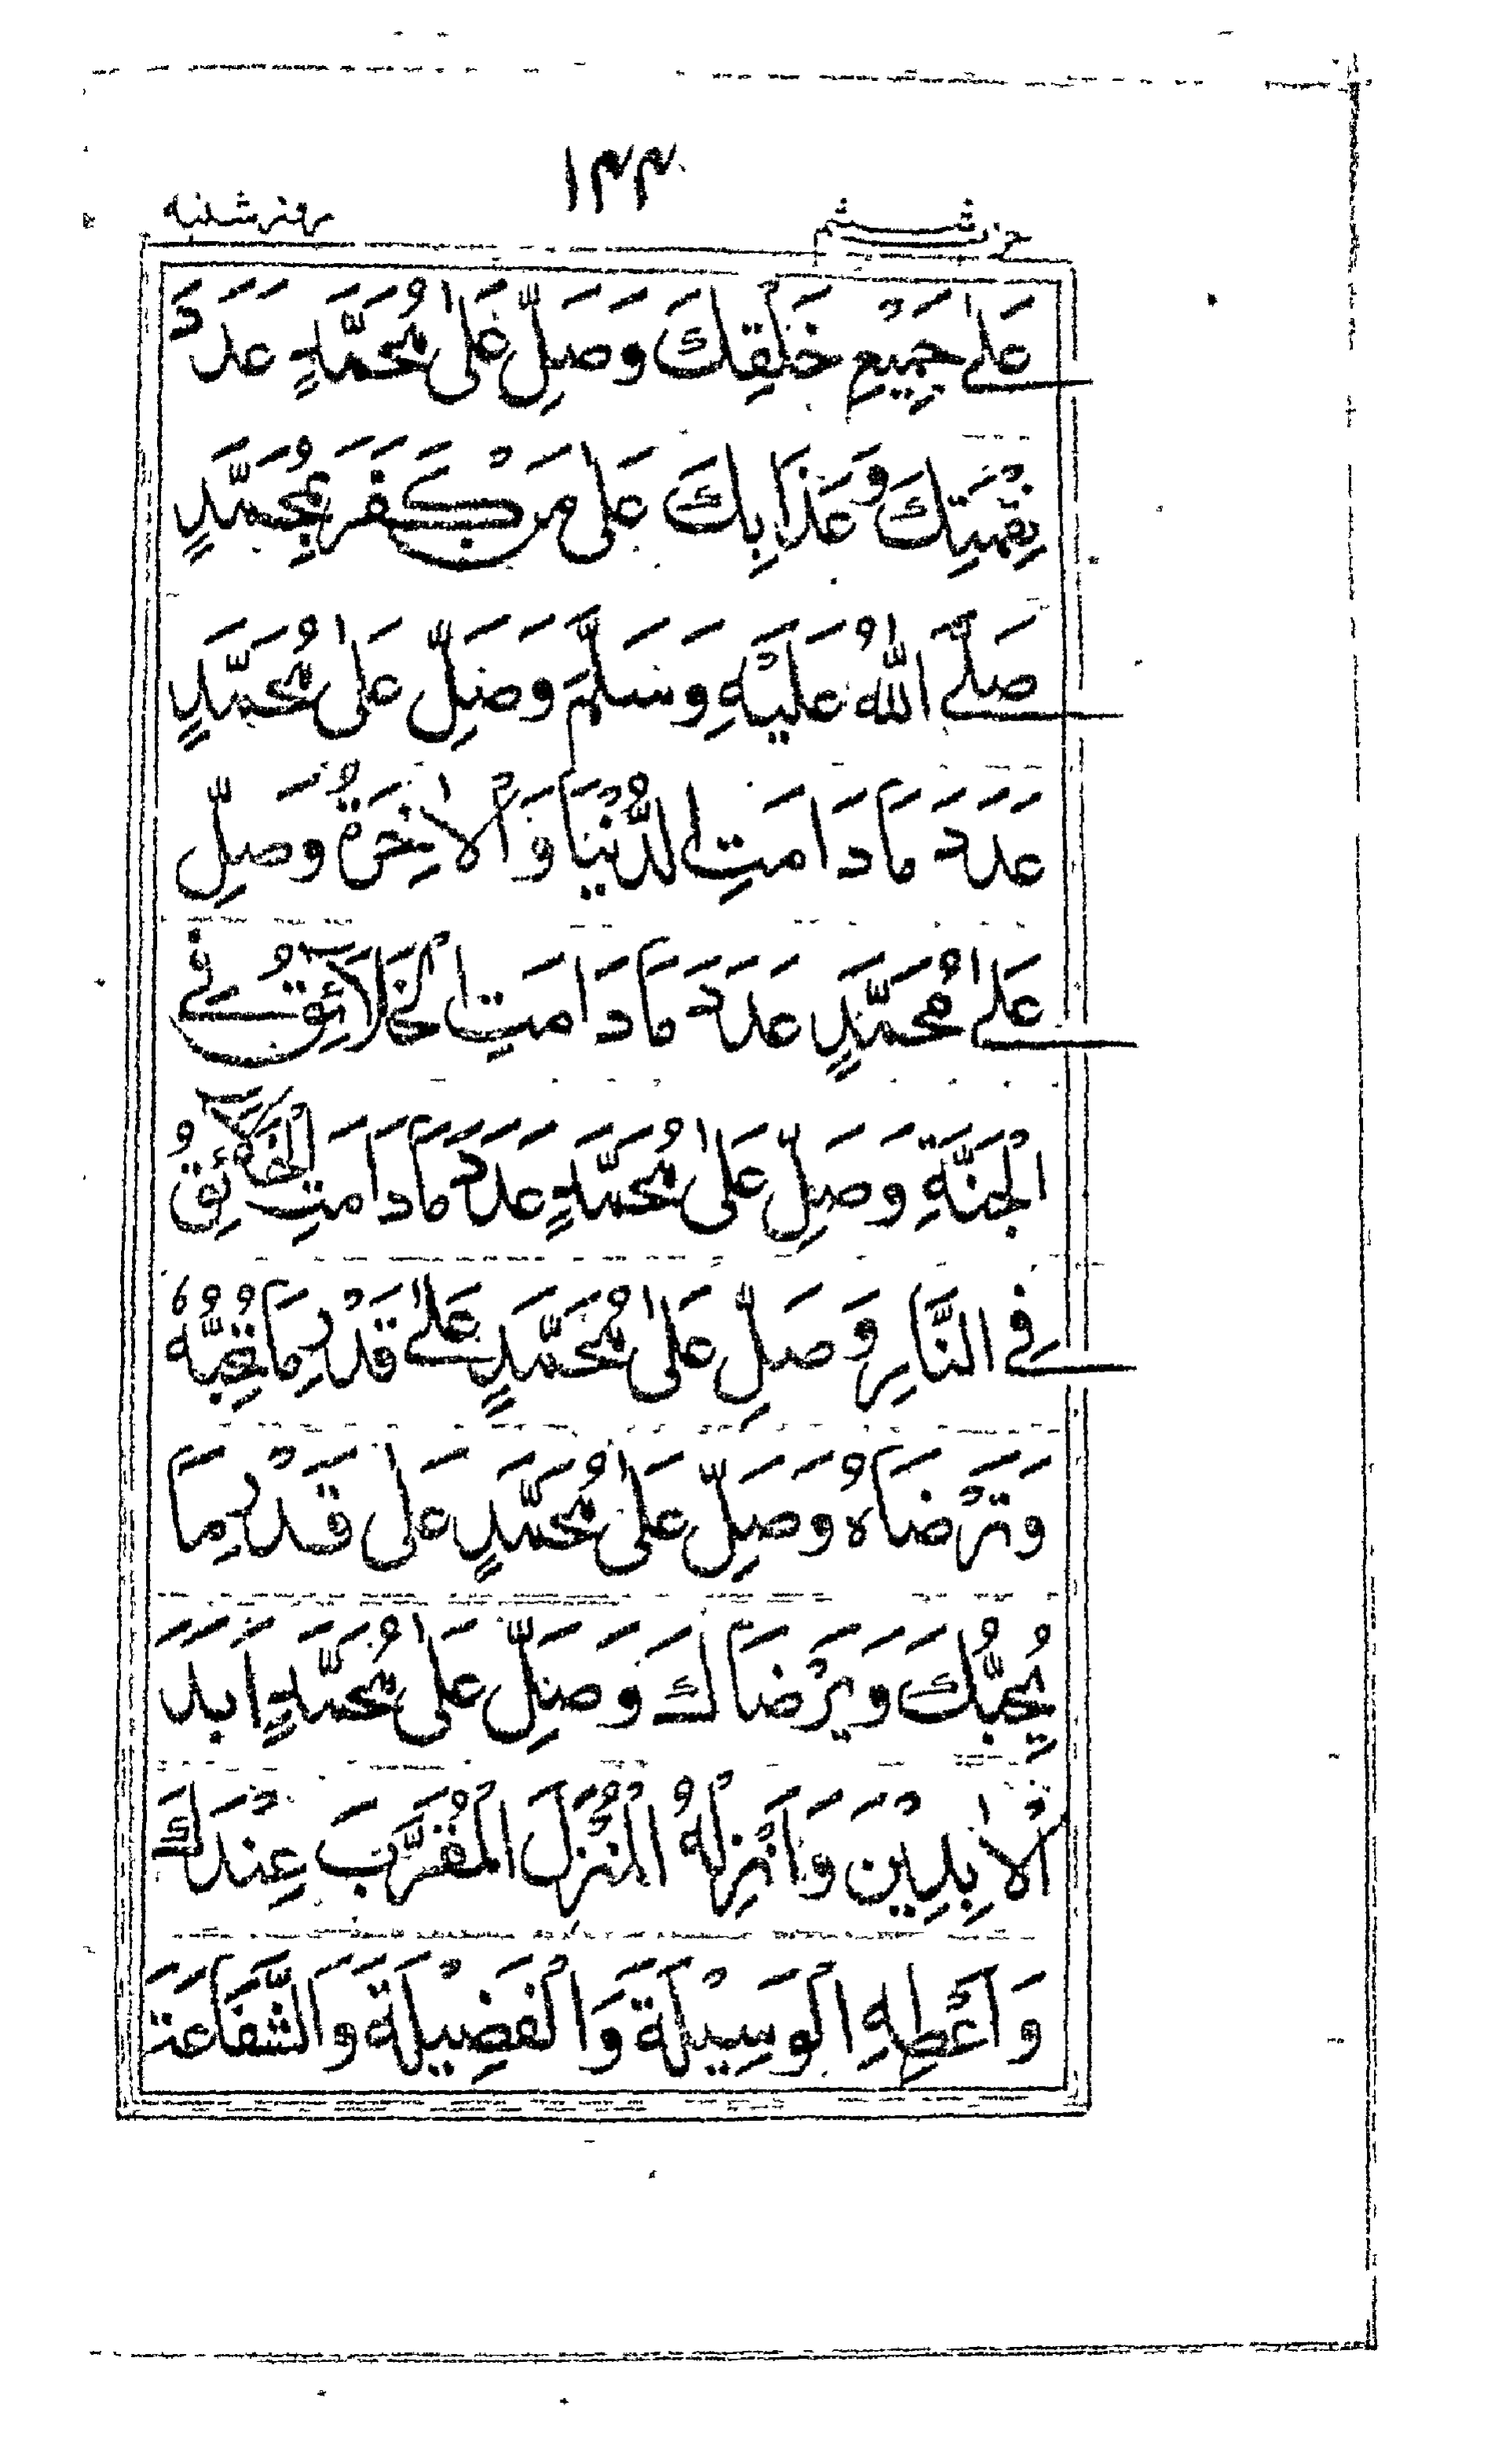 ۱۴۴
حزب ششم روز شنبه
عَلٰی جَمِیْعِ خَلْقِكَ وَصَلِّ عَلٰی مُحَمَّدٍ عَدَدَ
نِقْمَتِكَ وَعَذَابِكَ عَلٰی مَنْ كَفَرَ بِمُحَمَّدٍ
صَلَّے اللّٰهُ عَلَیْهِ وَسَلَّمَ وَصَلِّ عَلٰی مُحَمَّدٍ
عَدَدَ مَا دَامَتِ الدُّنْیَا وَالْاٰخِرَةُ وَصَلِّ
عَلٰے مُحَمَّدٍ عَدَدَ مَا دَامَتِ الْخَلَآئِقُ فِے
الْجَنَّةِ وَصَلِّ عَلٰی مُحَمَّدٍ عَدَدَ مَا دَامَتِ الْخَلَآئِقُ
فِے النَّارِ وَصَلِّ عَلٰی مُحَمَّدٍ عَلٰے قَدْرِ مَا تُحِبُّهٗ
وَتَرْضَاهُ وَصَلِّ عَلٰی مُحَمَّدٍ عَلٰی قَدْرِ مَا
یُحِبُّكَ وَیَرْضَاكَ وَصَلِّ عَلٰی مُحَمَّدٍ اَبَدَ
الْاٰبِدِیْنَ وَاَنْزِلْهُ الْمُنْزَلَ الْمُقَرَّبَ عِنْدَكَ
وَاَعْطِهِ الْوَسِیْلَةَ وَالْفَضِیْلَةَ وَالشَّفَاعَةَ